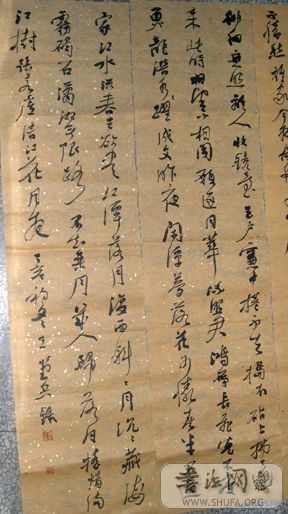 不勝愁誰家今夜
徘徊應照離人妝鏡台玉戶簾中捲不去搗衣砧上拂還
來此時相望不相聞願逐月華流照君鴻雁長飛光不
魚龍潛躍水成文昨夜閑潭夢落花可憐春半
家江水流春去欲盡江潭落月復西斜斜月沉沉藏海
霧碣石瀟湘無限路不知乘月幾人歸落月搖情滿
江樹張若虛春江花月夜
書法網
WWW.SHUFA.ORG